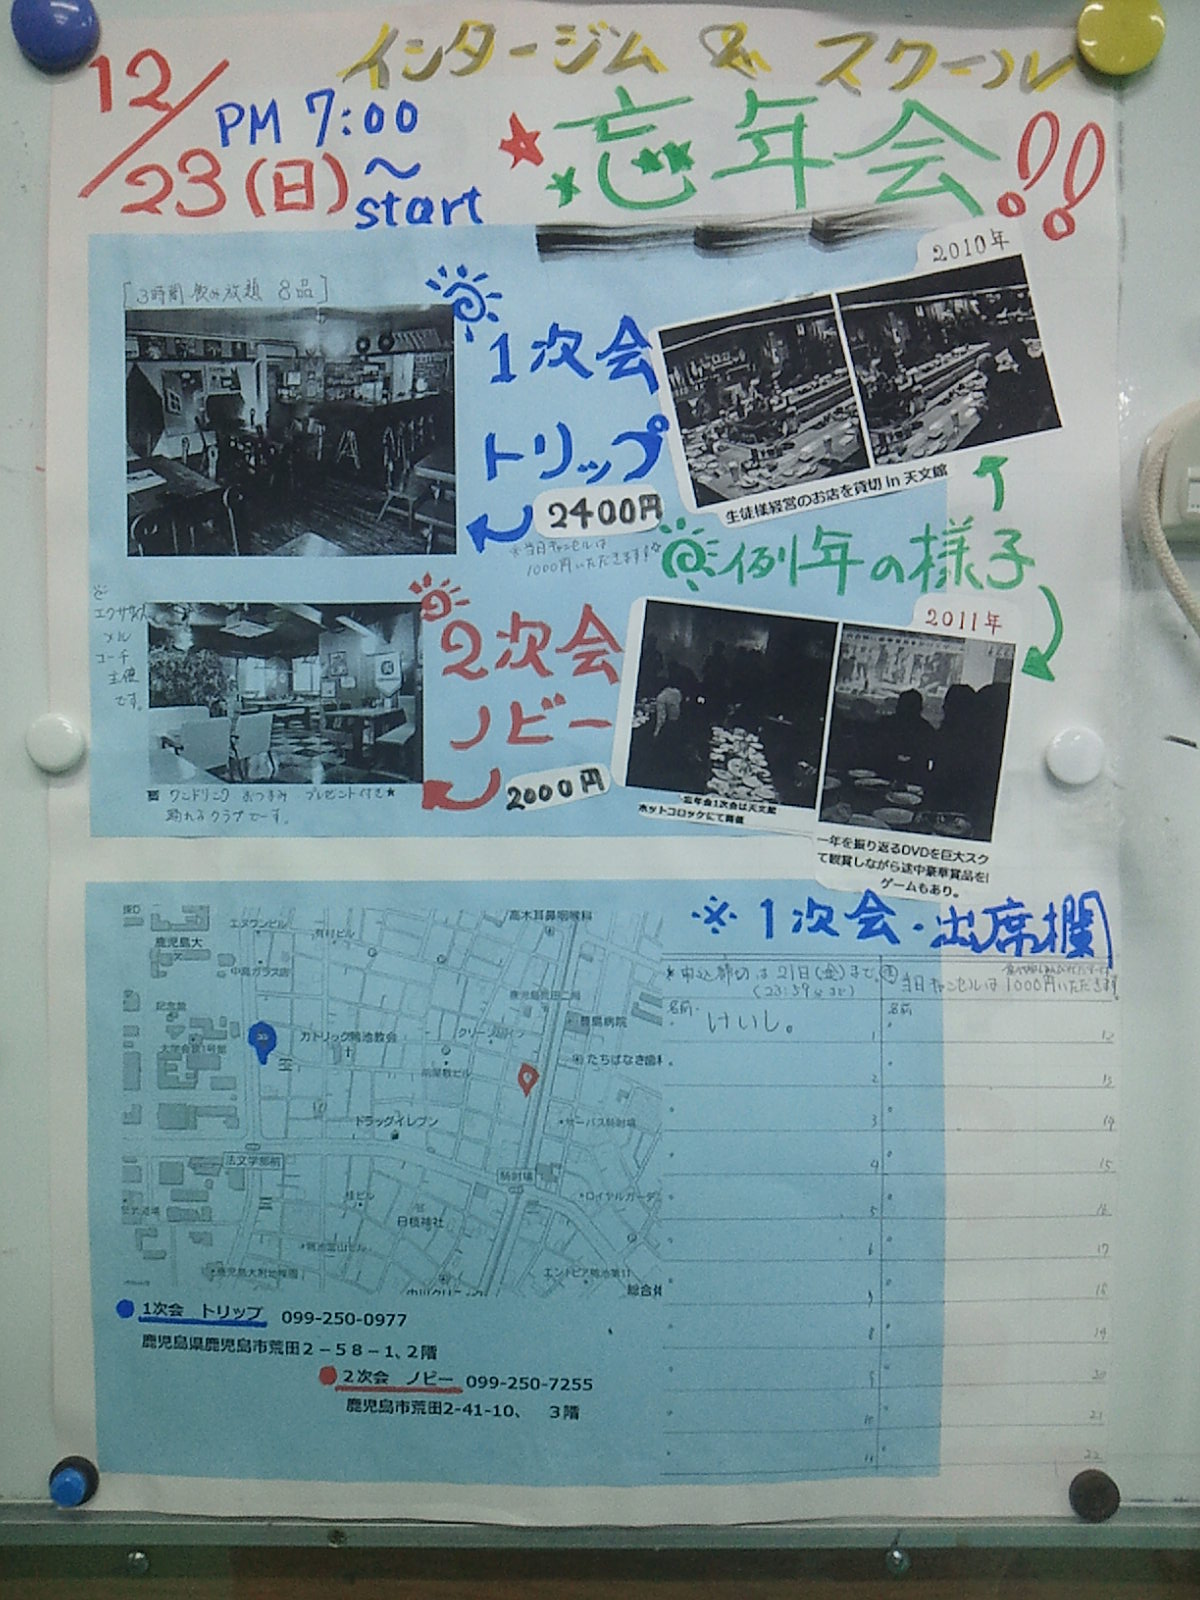 インタージム & スクール
12/23(日)
PM 7:00
～
start
忘年会!!
[3時間 飲み放題 8品]
1次会
トリップ
2400円
※当日キャンセルは
1000円いただきます
2010年
生徒様経営のお店を貸切 in 天文館
例年の様子
2011年
エクササイズ
メル
コーチ
主催
です。
2次会
ノビー
2000円
ワンドリンク おつまみ プレゼント付き★
踊れるクラブでーす。
忘年会1次会は天文館
ホットコロックにて開催
一年を振り返るDVDを巨大スク
て観賞しながら途中豪華賞品を
ゲームもあり。
※1次会・出席欄
*申込締切は21日(金)まで。
(23:59分まで)
当日キャンセルは1000円いただきます。
名前
けいし。
名前
1
2
3
4
5
6
7
8
9
10
11
12
13
14
15
16
17
18
19
20
21
22
高木耳鼻咽喉科
エヌワンビル
有村ビル
鹿児島大
中島ガラス店
鹿児島荒田二局
記念館
カトリック鴨池教会
豊島病院
たちばなき歯科
ドラッグイレブン
サーパス騎射場
法文学部前
騎射場
ロイヤルガーデ
日枝神社
鹿児島大附幼稚園
エントピア鴨池第11
総合体
1次会 トリップ 099-250-0977
鹿児島県鹿児島市荒田2－58－1、2階
2次会 ノビー 099-250-7255
鹿児島市荒田2-41-10、 3階